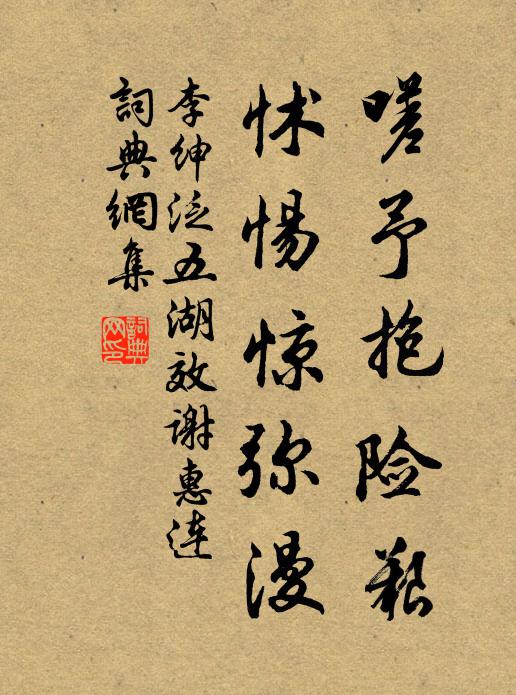 嗟予抱险艰
怵惕惊弥漫
李绅泛五湖效谢惠连
词典網集
詞典网印